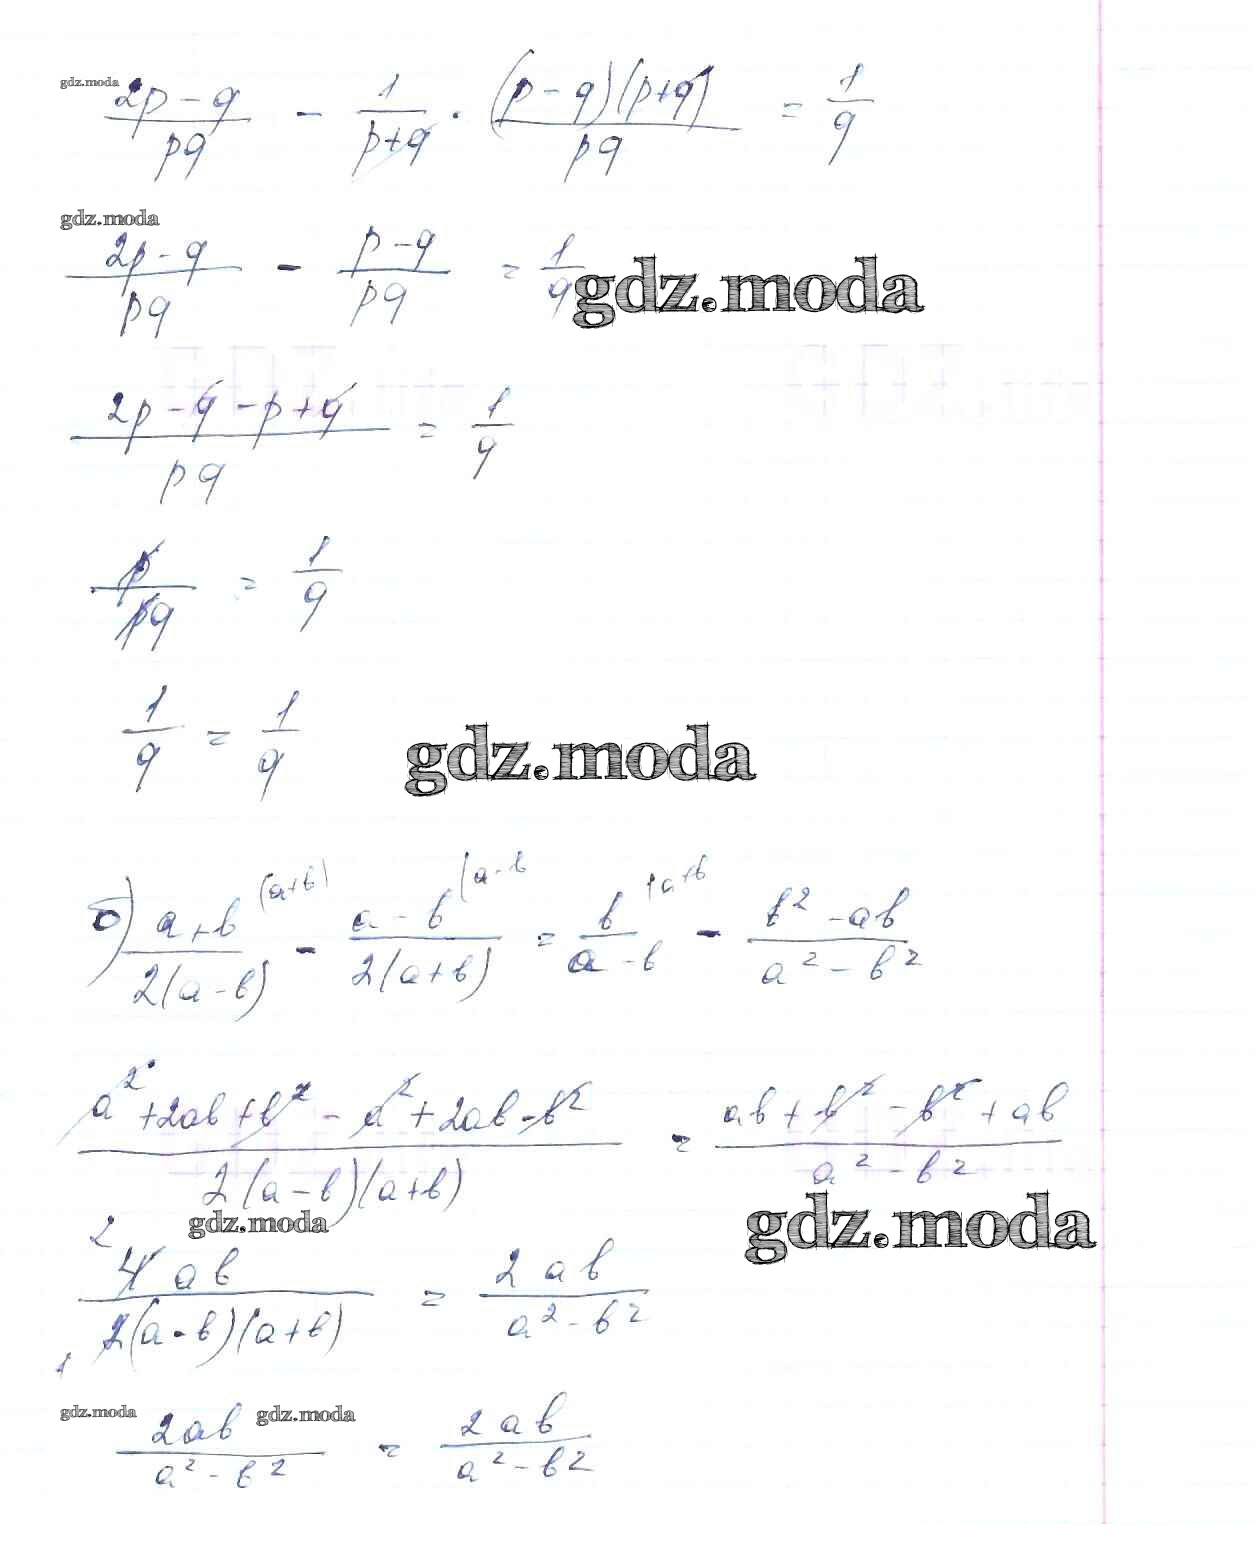 gdz.moda
(2p - q)/(pq) - 1/(p+q) · ((p - q)(p+q))/(pq) = 1/q
gdz.moda
(2p - q)/(pq) - (p - q)/(pq) = 1/q
gdz.moda
(2p - q - p + q)/(pq) = 1/q
p/(pq) = 1/q
1/q = 1/q
gdz.moda
б) (a+b)/(2(a-b)) (a+b) - (a-b)/(2(a+b)) (a-b = b/(a-b) (a+b - (b² - ab)/(a² - b²)
(a² + 2ab + b² - a² + 2ab - b²)/(2(a-b)(a+b)) = (ab + b² - b² + ab)/(a² - b²)
gdz.moda
gdz.moda
2
4ab/(2(a-b)(a+b)) = 2ab/(a² - b²)
1
gdz.moda
gdz.moda
2ab/(a² - b²) = 2ab/(a² - b²)